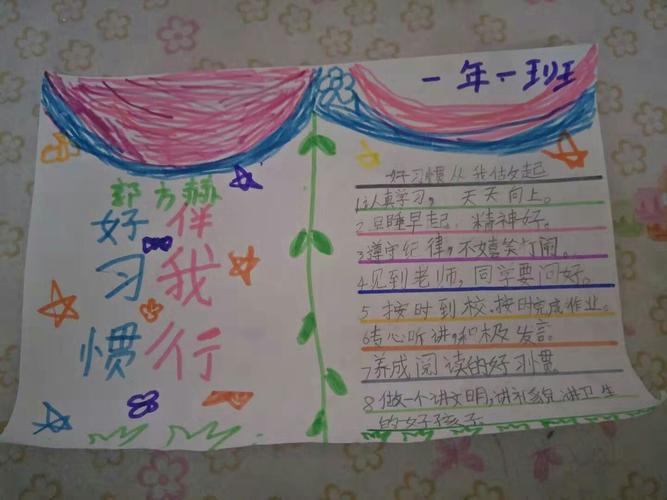 一年一班
郭方赫
好伴
习我
惯行
好习惯从我做起
1认真学习，天天向上。
2早睡早起，精神好。
3遵守纪律，不嬉笑打闹。
4见到老师，同学要问好。
5按时到校.按时完成作业。
6专心听讲,和极发言。
7养成阅读的好习惯。
8做一个讲文明,讲礼貌,讲卫生
的好孩子